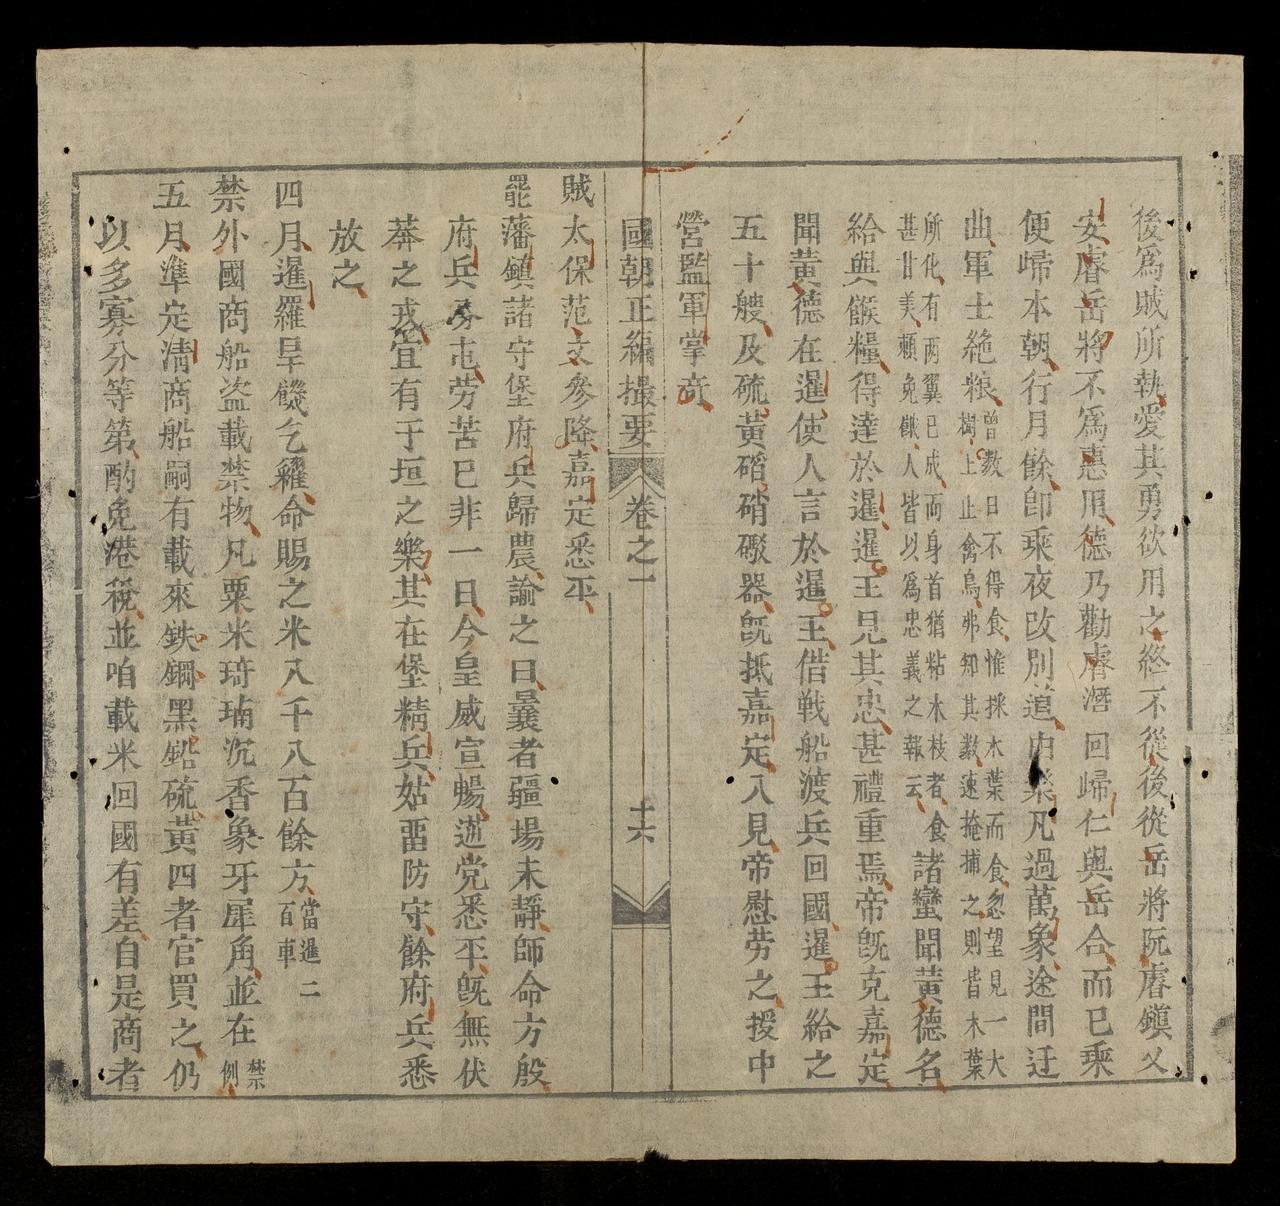 後爲賊所執愛其勇欲用之終不從後從岳將阮睿鎭乂
安睿岳將不爲惠用德乃勸睿潛回歸仁與岳合而已乘
便歸本朝行月餘卽乘夜改別道由樂凡過萬象途間迂
曲軍士絶粮曾数日不得食惟採木葉而食忽望見一大
樹上止禽鳥弗知其数速掩捕之則皆木葉
所化有两翼已成而身首猶粘木枝者食
甚甘美頼免饑人皆以爲忠義之報云諸蠻聞黃德名
給與餱糧得達於暹暹王見其忠甚禮重焉帝旣克嘉定
聞黃德在暹使人言於暹王借戦船渡兵回國暹王給之
五十艘及硫黃硝礮器旣抵嘉定入見帝慰劳之授中
營監軍掌奇
國朝正編撮要 卷之一 十六
賊太保范文參降嘉定悉平
罷藩鎭諸守堡府兵歸農諭之曰曩者疆場未靜師命方殷
府兵分屯劳苦已非一日今皇威宣暢逋党悉平旣無伏
莾之戎宜有于垣之樂其在堡精兵姑畱防守餘府兵悉
放之
四月暹羅旱饑乞糴命賜之米八千八百餘方當暹二
百車
禁外國商船盗載禁物凡粟米琦瑀沉香象牙犀角並在禁
例
五月準定清商船嗣有載來鉄鋼黑鉛硫黃四者官買之仍
以多寡分等第酌免港稅並咱載米回國有差自是商者